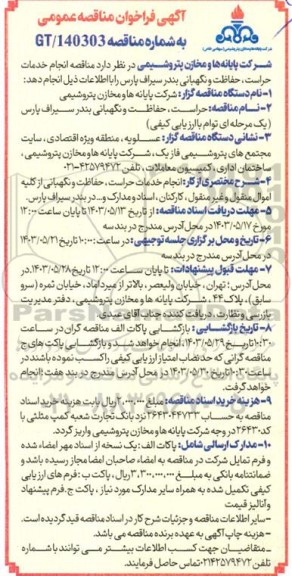 آگهی فراخوان مناقصه عمومی
به شماره مناقصه GT/140303
شرکت پایانه ها و مخازن پتروشیمی در نظر دارد مناقصه انجام خدمات
حراست، حفاظت و نگهبانی بندر سیراف پارس را با اطلاعات ذیل انجام دهد:
۱- نام دستگاه مناقصه گزار: شرکت پایانه ها و مخازن پتروشیمی
۲- نام مناقصه: حراست، حفاظت و نگهبانی بندر سیراف پارس
(یک مرحله ای توام با ارزیابی کیفی)
۳- نشانی دستگاه مناقصه گزار: عسلویه، منطقه ویژه اقتصادی، سایت
مجتمع های پتروشیمی فاز یک، شرکت پایانه ها و مخازن پتروشیمی،
ساختمان اداری، کمیسیون معاملات، تلفن ۴۲۵۷۹۴۷۲-۰۲۱
۴- شرح مختصری از کار: انجام خدمات حراست، حفاظت و نگهبانی از کلیه
اموال منقول و غیر منقول، کارکنان، اسناد و مدارک و... در بندر سیراف پارس.
۵- مهلت دریافت اسناد مناقصه: از تاریخ ۱۴۰۳/۰۵/۱۳ تا پایان ساعت ۱۲:۰۰
مورخ ۱۴۰۳/۰۵/۱۷ در محل آدرس مندرج در بند سه
۶- تاریخ و محل برگزاری جلسه توجیهی: در ساعت ۱۰:۰۰ تاریخ ۱۴۰۳/۰۵/۲۱
در محل آدرس مندرج در بند سه
۷- مهلت قبول پیشنهادات: تا پایان ساعت ۱۲:۰۰ تاریخ ۱۴۰۳/۰۵/۲۸ در
محل آدرس: تهران، خیابان ولیعصر، بالاتر از میرداماد، خیابان ثمره (سرو
سابق)، پلاک ۴۴، شرکت پایانه ها و مخازن پتروشیمی، دفتر مدیریت
بازرسی و نظارت، دریافت کننده جناب آقای عبدی
۸- تاریخ بازگشایی: بازگشایی پاکات الف مناقصه گران در ساعت
۱۰:۳۰ تاریخ ۱۴۰۳/۰۵/۲۹ انجام خواهد شد و بازگشایی پاکت های ج
مناقصه گرانی که حد نصاب امتیاز ارزیابی کیفی را کسب نموده باشند در
ساعت ۱۰:۳۰ تاریخ ۱۴۰۳/۰۵/۳۰ در محل آدرس مندرج در بند هفت انجام
خواهد گرفت.
۹- هزینه خرید اسناد مناقصه: مبلغ ۲،۰۰۰،۰۰۰ ریال بابت هزینه خرید اسناد
مناقصه به حساب ۲۶۴۳۰۴۴۷۳۳ نزد بانک تجارت شعبه کمپ مثلثی با
کد ۲۶۴۳۰ در وجه شرکت پایانه ها و مخازن پتروشیمی واریز گردد.
۱۰- مدارک ارسالی شامل: پاکات الف: یک نسخه از اسناد مهر امضاء شده
و فرم تمایل شرکت در مناقصه به امضاء صاحبان امضا مجاز رسیده باشد و
ضمانتنامه بانکی به مبلغ ۳،۳۰۰،۰۰۰،۰۰۰ ریال، پاکت ب: فرم های ارزیابی
کیفی تکمیل شده به همراه سایر مدارک مورد نیاز، پاکت ج: فرم پیشنهاد
و آنالیز قیمت
- سایر اطلاعات مناقصه و جزئیات شرح کار در اسناد مناقصه قید گردیده است.
- هزینه چاپ آگهی به عهده برنده مناقصه می باشد.
- متقاضیان جهت کسب اطلاعات بیشتر می توانند با شماره
تلفن ۰۲۱۴۲۵۷۹۴۷۲ تماس حاصل فرمایند.